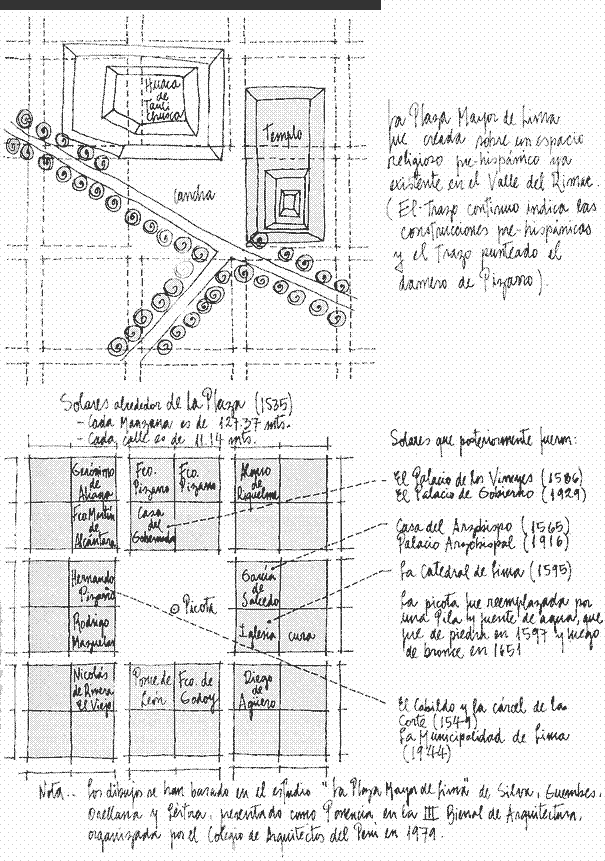 Huaca
de
Tauli
chusco
Templo
Cancha
La Plaza Mayor de Lima
fue creada sobre un espacio
religioso pre-hispánico ya
existente en el Valle del Rimac.
( El trazo continuo indica las
construcciones pre-hispánicas
y el trazo punteado el
damero de Pizarro).
Solares alrededor de La Plaza (1535)
- Cada Manzana es de 127.37 mts.
- Cada calle es de 11.14 mts.
Gerónimo
de
Aliaga
Fco.
Pizarro
Fco.
Pizarro
Alonso
de
Riquelme
Fco Martín
de
Alcántara
Casa
del
Gobernador
Hernando
Pizarro
Rodrigo
Mazuelas
Picota
García
de
Salcedo
Iglesia
cura
Nicolás
de Rivera
El Viejo
Ponce de
León
Fco. de
Godoy
Diego
de
Agüero
Solares que posteriormente fueron:
El Palacio de los Virreyes (1586)
El Palacio de Gobierno (1929)
Casa del Arzobispo (1565)
Palacio Arzobispal (1916)
La Catedral de Lima (1595)
La picota fue reemplazada por
una Pila y fuente de agua, que
fue de piedra en 1597 y luego
de bronce en 1651
El Cabildo y la cárcel de la
Corte (1549)
La Municipalidad de Lima
(1944)
Nota.- Los dibujos se han basado en el estudio "La Plaza Mayor de Lima" de Silva, Guembes,
Orellana y presentado como Ponencia, en la III Bienal de Arquitectura,
organizada por el Colegio de Arquitectos del Perú en 1979.